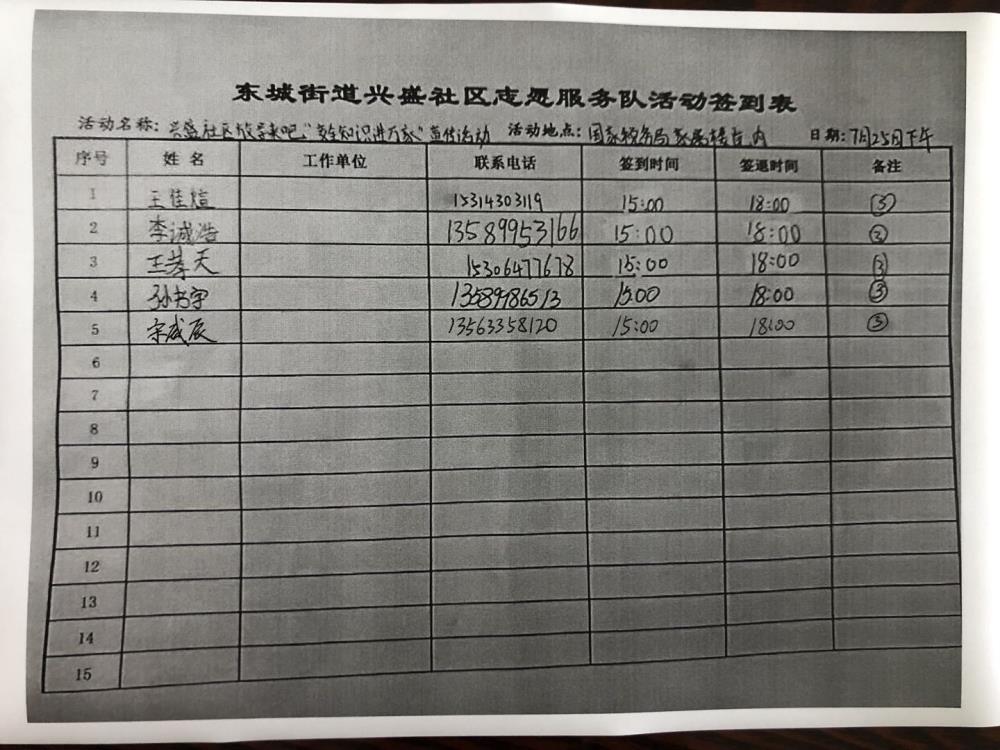 东城街道兴盛社区志愿服务队活动签到表
活动名称：兴盛社区放学来吧"安全知识进万家"宣传活动 活动地点：国家税务局家属楼院内 日期：7月25日下午
序号 姓名 工作单位 联系电话 签到时间 签退时间 备注
1 王佳煊 15314303119 15:00 18:00 ③
2 李诚浩 13589953166 15:00 18:00 ③
3 王孝天 15306477678 15:00 18:00 ③
4 孙书宇 13589786513 15:00 18:00 ③
5 宗成辰 13563358120 15:00 18:00 ③
6
7
8
9
10
11
12
13
14
15